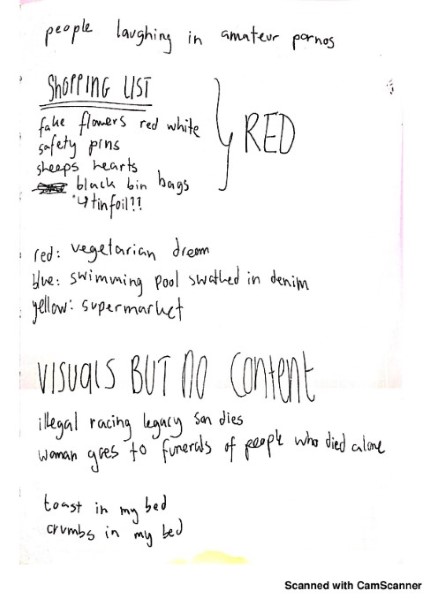 people laughing in amateur pornos
SHOPPING LIST
fake flowers red white
safety pins
sheeps hearts
black bin bags
↳ tinfoil!!
RED
red: vegetarian dream
blue: swimming pool swathed in denim
yellow: supermarket
VISUALS BUT NO CONTENT
illegal racing legacy son dies
woman goes to funerals of people who died alone
toast in my bed
crumbs in my bed
Scanned with CamScanner